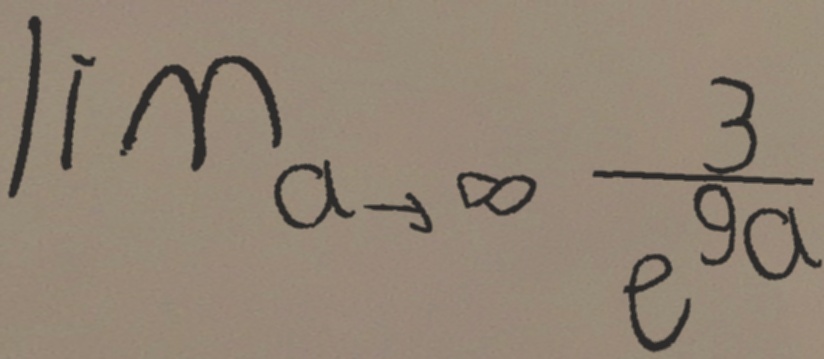 lim a→∞ 3/e^9a